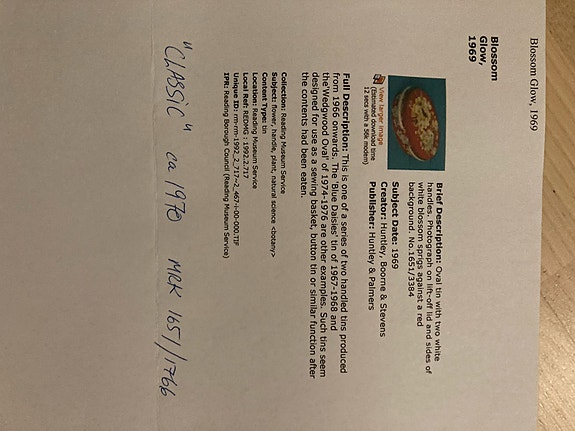 Blossom Glow, 1969
Blossom
Glow,
1969
View larger image
(Estimated download time
12 secs with a 56k modem)
Brief Description: Oval tin with two white
handles. Photograph on lift-off lid and sides of
white blossom sprigs against a red
background. No.1651/3384
Subject Date: 1969
Creator: Huntley, Boorne & Stevens
Publisher: Huntley & Palmers
Full Description: This is one of a series of two handled tins produced
from 1966 onwards. The 'Blue Daisies' tin of 1967-1968 and
the Wedgwood oval of 1974-1976 are other examples. Such tins seem
designed for use as a sewing basket, button tin or similar function after
the contents had been eaten.
Collection: Reading Museum Service
Subject: flower, handle, plant, natural science <botany>
Content Type: tin
Location: Reading Museum Service
Local Ref: REDMG : 1992.2.717
Unique ID: rm-rm-1992_2_717~2_467-i-00-000.TIF
IPR: Reading Borough Council (Reading Museum Service)
"CLASSIC" ca 1970 MRK 1651/1766